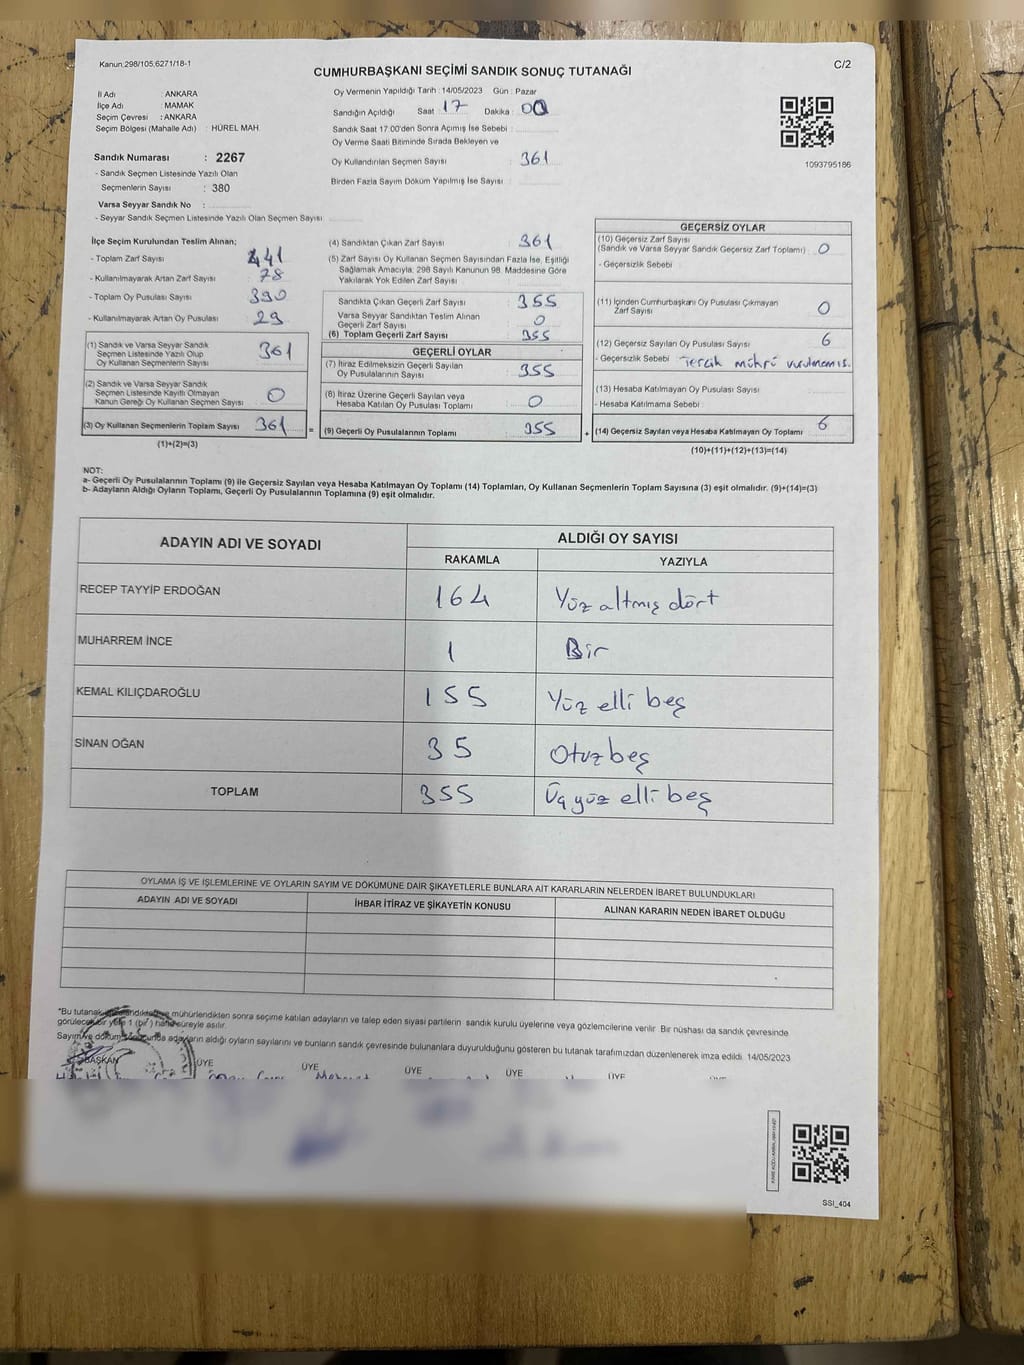 Kanun:298/105,6271/18-1
C/2
CUMHURBAŞKANI SEÇİMİ SANDIK SONUÇ TUTANAĞI
İl Adı : ANKARA
İlçe Adı : MAMAK
Seçim Çevresi : ANKARA
Seçim Bölgesi (Mahalle Adı) : HÜREL MAH.
Sandık Numarası : 2267
- Sandık Seçmen Listesinde Yazılı Olan
Seçmenlerin Sayısı : 380
Varsa Seyyar Sandık No :
- Seyyar Sandık Seçmen Listesinde Yazılı Olan Seçmen Sayısı
Oy Vermenin Yapıldığı Tarih : 14/05/2023 Gün : Pazar
Sandığın Açıldığı Saat : 17 Dakika : 00
Sandık Saat 17:00'den Sonra Açımış İse Sebebi :
Oy Verme Saati Bitiminde Sırada Bekleyen ve
Oy Kullandırılan Seçmen Sayısı : 361
Birden Fazla Sayım Döküm Yapılmış İse Sayısı :
1093795186
İlçe Seçim Kurulundan Teslim Alınan;
- Toplam Zarf Sayısı : 441
- Kullanılmayarak Artan Zarf Sayısı : 78
- Toplam Oy Pusulası Sayısı : 390
- Kullanılmayarak Artan Oy Pusulası : 29
(1) Sandık ve Varsa Seyyar Sandık
Seçmen Listesinde Yazılı Olup
Oy Kullanan Seçmenlerin Sayısı : 361
(2) Sandık ve Varsa Seyyar Sandık
Seçmen Listesinde Kayıtlı Olmayan
Kanun Gereği Oy Kullanan Seçmen Sayısı : 0
(3) Oy Kullanan Seçmenlerin Toplam Sayısı : 361
(1)+(2)=(3)
(4) Sandıktan Çıkan Zarf Sayısı : 361
(5) Zarf Sayısı Oy Kullanan Seçmen Sayısından Fazla İse, Eşitliği
Sağlamak Amacıyla; 298 Sayılı Kanunun 98. Maddesine Göre
Yakılarak Yok Edilen Zarf Sayısı :
Sandıkta Çıkan Geçerli Zarf Sayısı : 355
Varsa Seyyar Sandıktan Teslim Alınan
Geçerli Zarf Sayısı : 0
(6) Toplam Geçerli Zarf Sayısı : 355
GEÇERLİ OYLAR
(7) İtiraz Edilmeksizin Geçerli Sayılan
Oy Pusulalarının Sayısı : 355
(8) İtiraz Üzerine Geçerli Sayılan veya
Hesaba Katılan Oy Pusulası Toplamı : 0
= (9) Geçerli Oy Pusulalarının Toplamı : 355
GEÇERSİZ OYLAR
(10) Geçersiz Zarf Sayısı
(Sandık ve Varsa Seyyar Sandık Geçersiz Zarf Toplamı) : 0
- Geçersizlik Sebebi :
(11) İçinden Cumhurbaşkanı Oy Pusulası Çıkmayan
Zarf Sayısı : 0
(12) Geçersiz Sayılan Oy Pusulası Sayısı : 6
- Geçersizlik Sebebi : Tercih mührü vurulmamış.
(13) Hesaba Katılmayan Oy Pusulası Sayısı :
- Hesaba Katılmama Sebebi :
+ (14) Geçersiz Sayılan veya Hesaba Katılmayan Oy Toplamı : 6
(10)+(11)+(12)+(13)=(14)
NOT:
a- Geçerli Oy Pusulalarının Toplamı (9) ile Geçersiz Sayılan veya Hesaba Katılmayan Oy Toplamı (14) Toplamları, Oy Kullanan Seçmenlerin Toplam Sayısına (3) eşit olmalıdır. (9)+(14)=(3)
b- Adayların Aldığı Oyların Toplamı, Geçerli Oy Pusulalarının Toplamına (9) eşit olmalıdır.
ADAYIN ADI VE SOYADI
ALDIĞI OY SAYISI
RAKAMLA YAZIYLA
RECEP TAYYİP ERDOĞAN 164 Yüz altmış dört
MUHARREM İNCE 1 Bir
KEMAL KILIÇDAROĞLU 155 Yüz elli beş
SİNAN OĞAN 35 Otuz beş
TOPLAM 355 Üç yüz elli beş
OYLAMA İŞ VE İŞLEMLERİNE VE OYLARIN SAYIM VE DÖKÜMÜNE DAİR ŞİKAYETLERLE BUNLARA AİT KARARLARIN NELERDEN İBARET BULUNDUKLARI
ADAYIN ADI VE SOYADI İHBAR İTİRAZ VE ŞİKAYETİN KONUSU ALINAN KARARIN NEDEN İBARET OLDUĞU
*Bu tutanak mühürlendikten sonra seçime katılan adayların ve talep eden siyasi partilerin sandık kurulu üyelerine veya gözlemcilerine verilir. Bir nüshası da sandık çevresinde
görülecek bir yere 1 (bir) hafta süreyle asılır.
Sayım ve döküm sonucunda adayların aldığı oyların sayılarını ve bunların sandık çevresinde bulunanlara duyurulduğunu gösteren bu tutanak tarafımızdan düzenlenerek imza edildi. 14/05/2023
BAŞKAN ÜYE ÜYE ÜYE ÜYE ÜYE
SSI_404